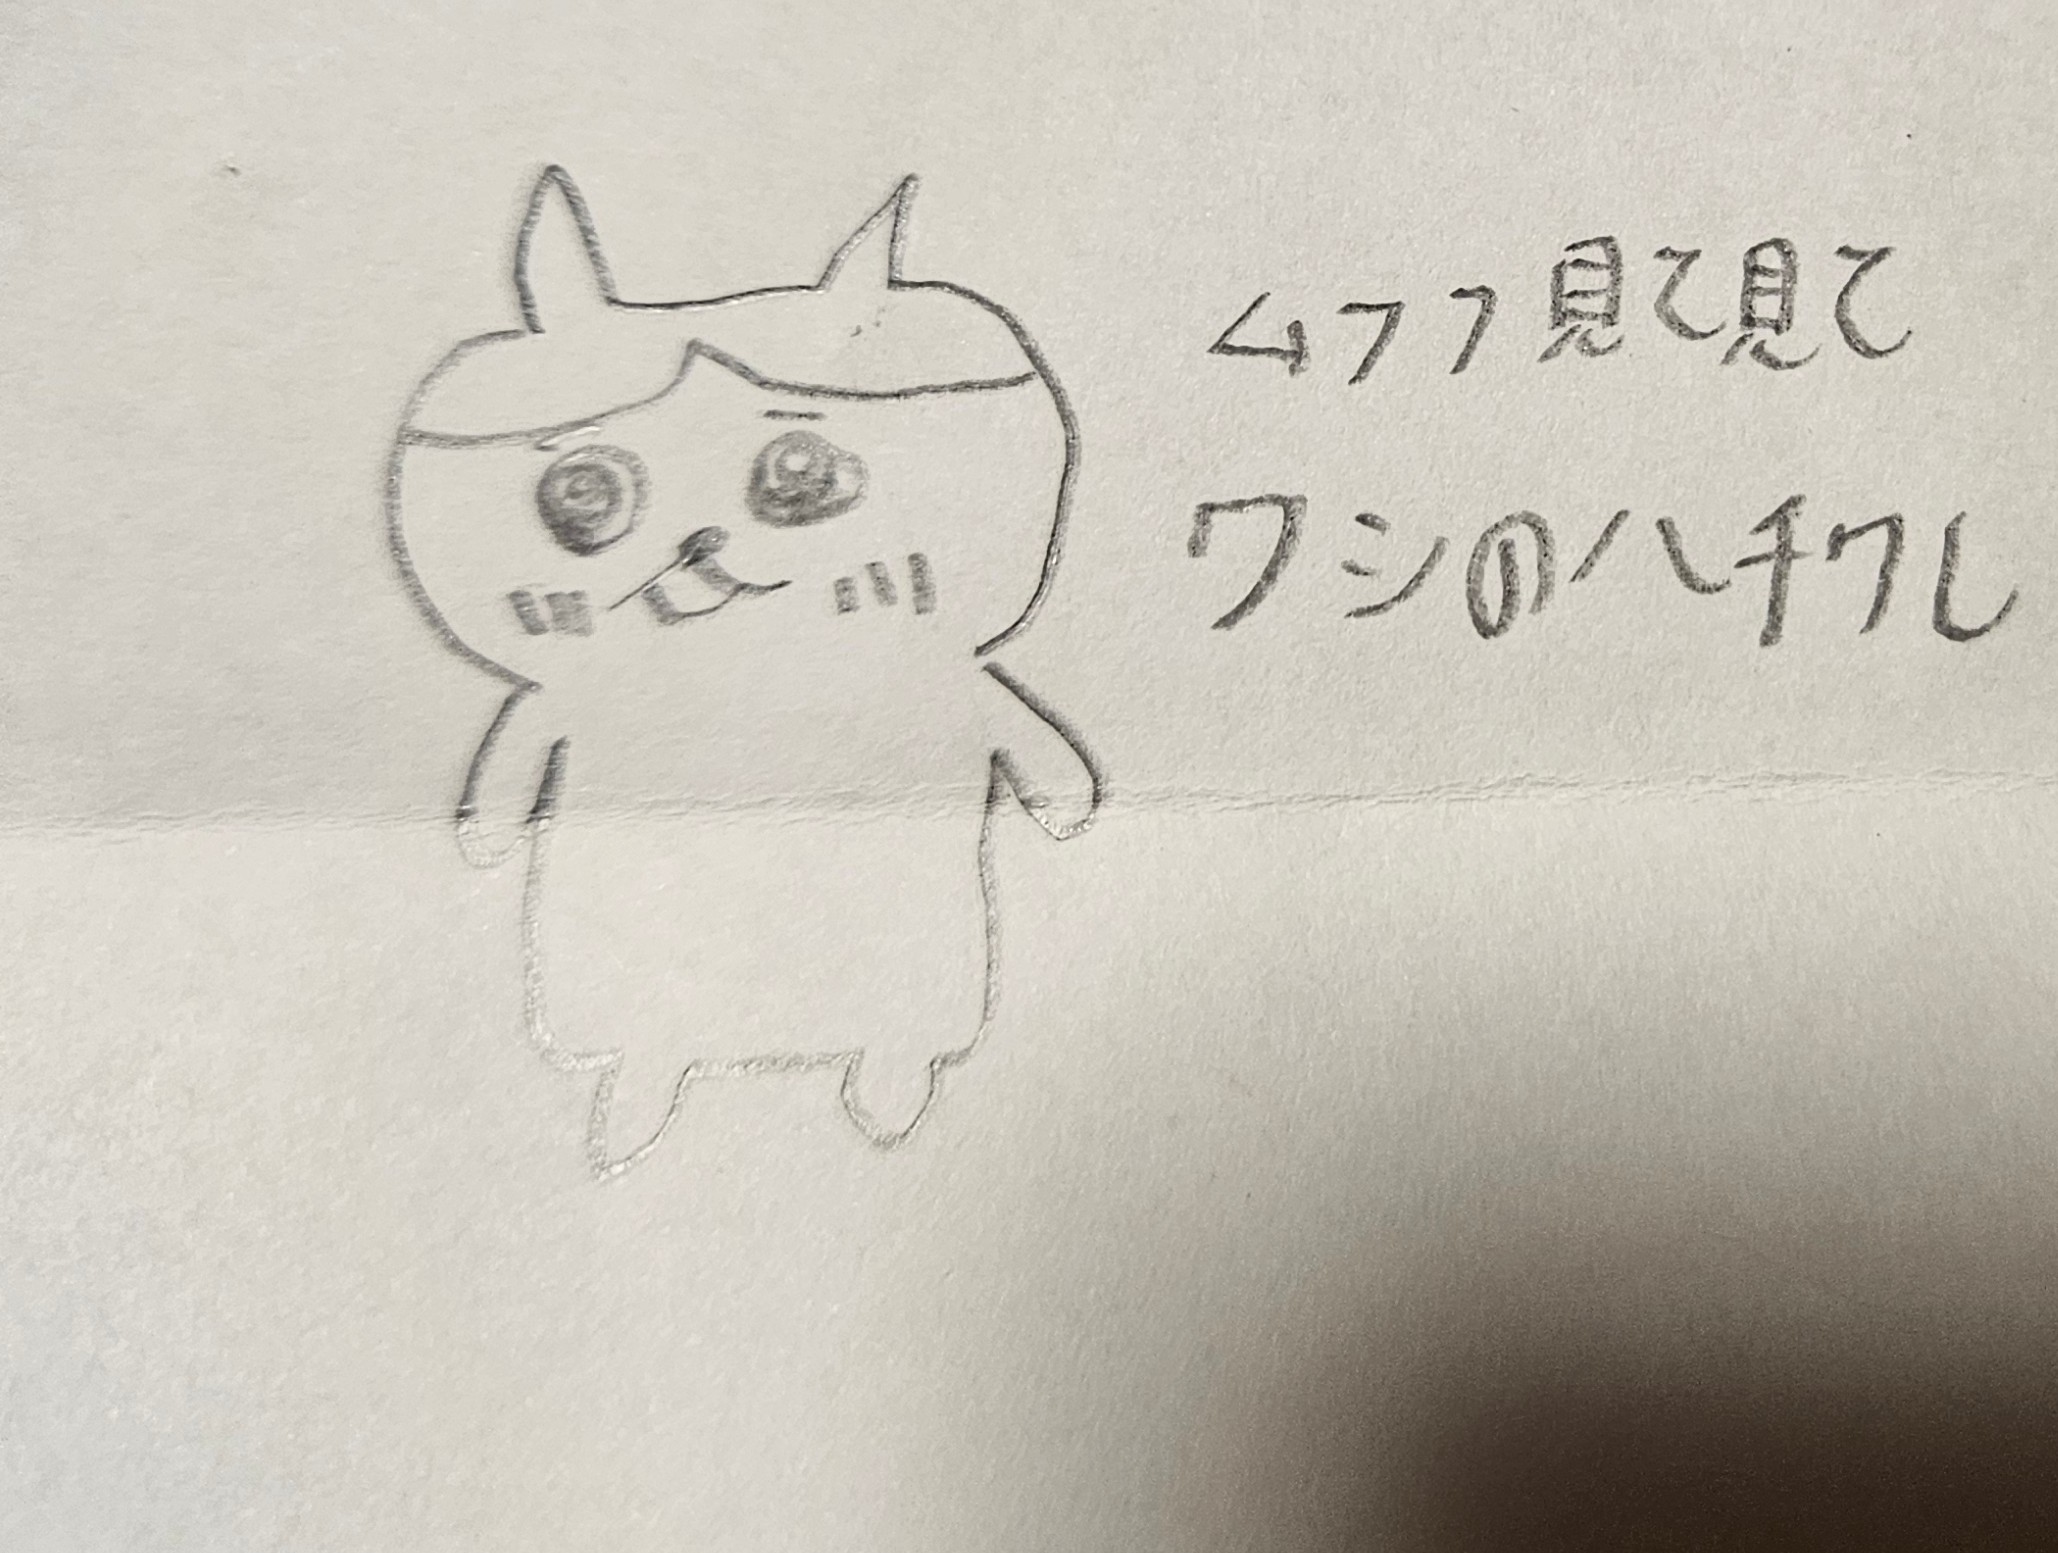 ムフフ見て見て
ワシのハチワレ